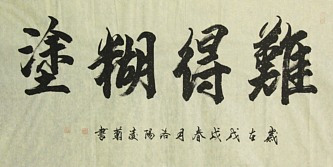 難得糊塗
歲在戊戌春月洛陽凌霜書